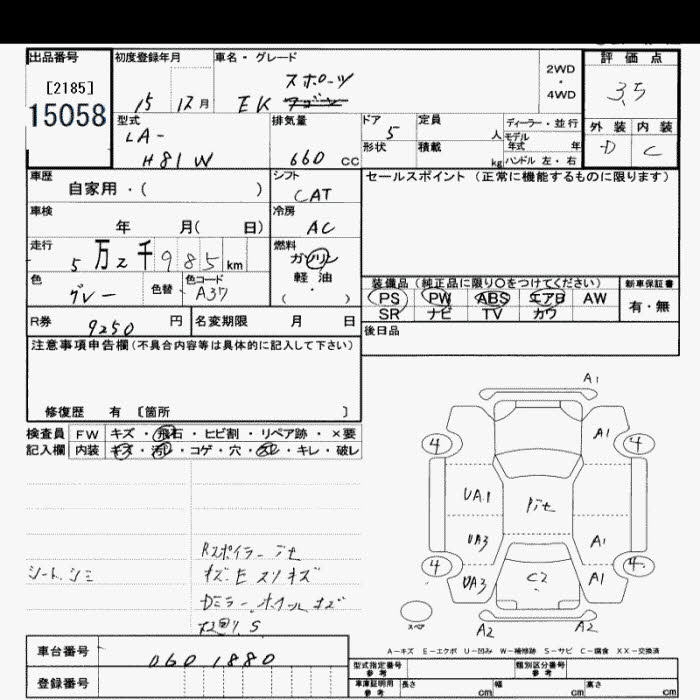 出品番号 初度登録年月 車名・グレード 評価点
[2185] スポーツ 2WD
15058 15 12月 EK ワゴン ・4WD 3.5
型式 排気量 ドア 定員 ディーラー・並行 外装 内装
LA- 5 人 モデル年式 年 D C
H81W 660 cc 形状 積載 kg ハンドル 左・右
車歴 シフト セールスポイント (正常に機能するものに限ります)
自家用・( ) CAT
車検 冷房
年 月( 日) AC
走行 燃料
5万2千985km ガソリン
色 色替 色コード 軽油
グレー A37 ( ・ )
装備品 (純正品に限り○をつけてください) 新車保証書
PS PW ABS エアB AW 有・無
SR ナビ TV カワ
R券 9250 円 名変期限 月 日 後日品
注意事項申告欄(不具合内容等は具体的に記入して下さい)
修復歴 有 〔箇所 〕
検査員 FW キズ・飛石・ヒビ割・リペア跡・×要
記入欄 内装 キズ・汚レ・コゲ・穴・スレ・キレ・破レ
A1
4 A1 4
UA1 アセ
UA3 A1
4 UA3 C2 A1 4
スペア A2 A2
Rスポイラーアセ
シートシミ キズ.E スリキズ
Dミラー.ホイールキズ
A-キズ E-エクボ U-凹み W-補修跡 S-サビ C-腐食 XX-交換済
車台番号 0601880
型式指定番号 参考 類別区分番号 参考
登録番号 車庫証明用 参考 長さ cm 幅 cm 高さ cm